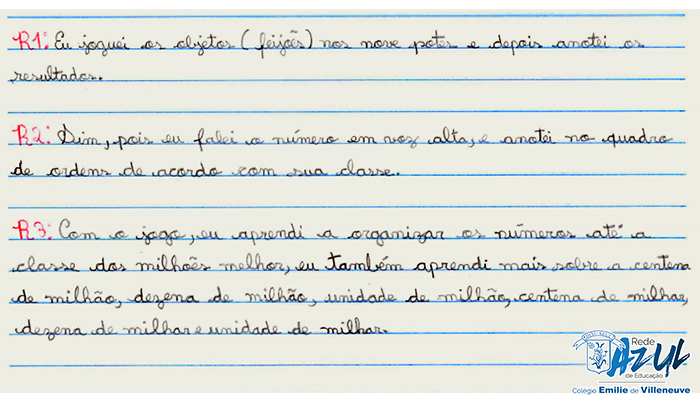 R1: Eu joguei os objetos (feijões) nos nove potes e depois anotei os
resultados.
R2: Sim, pois eu falei o número em voz alta, e anotei no quadro
de ordens de acordo com sua classe.
R3: Com o jogo, eu aprendi a organizar os números até a
classe dos milhões melhor, eu também aprendi mais sobre a centena
de milhão, dezena de milhão, unidade de milhão, centena de milhar,
dezena de milhar e unidade de milhar.
Rede
AZUL
de Educação
Colégio Emilie de Villeneuve